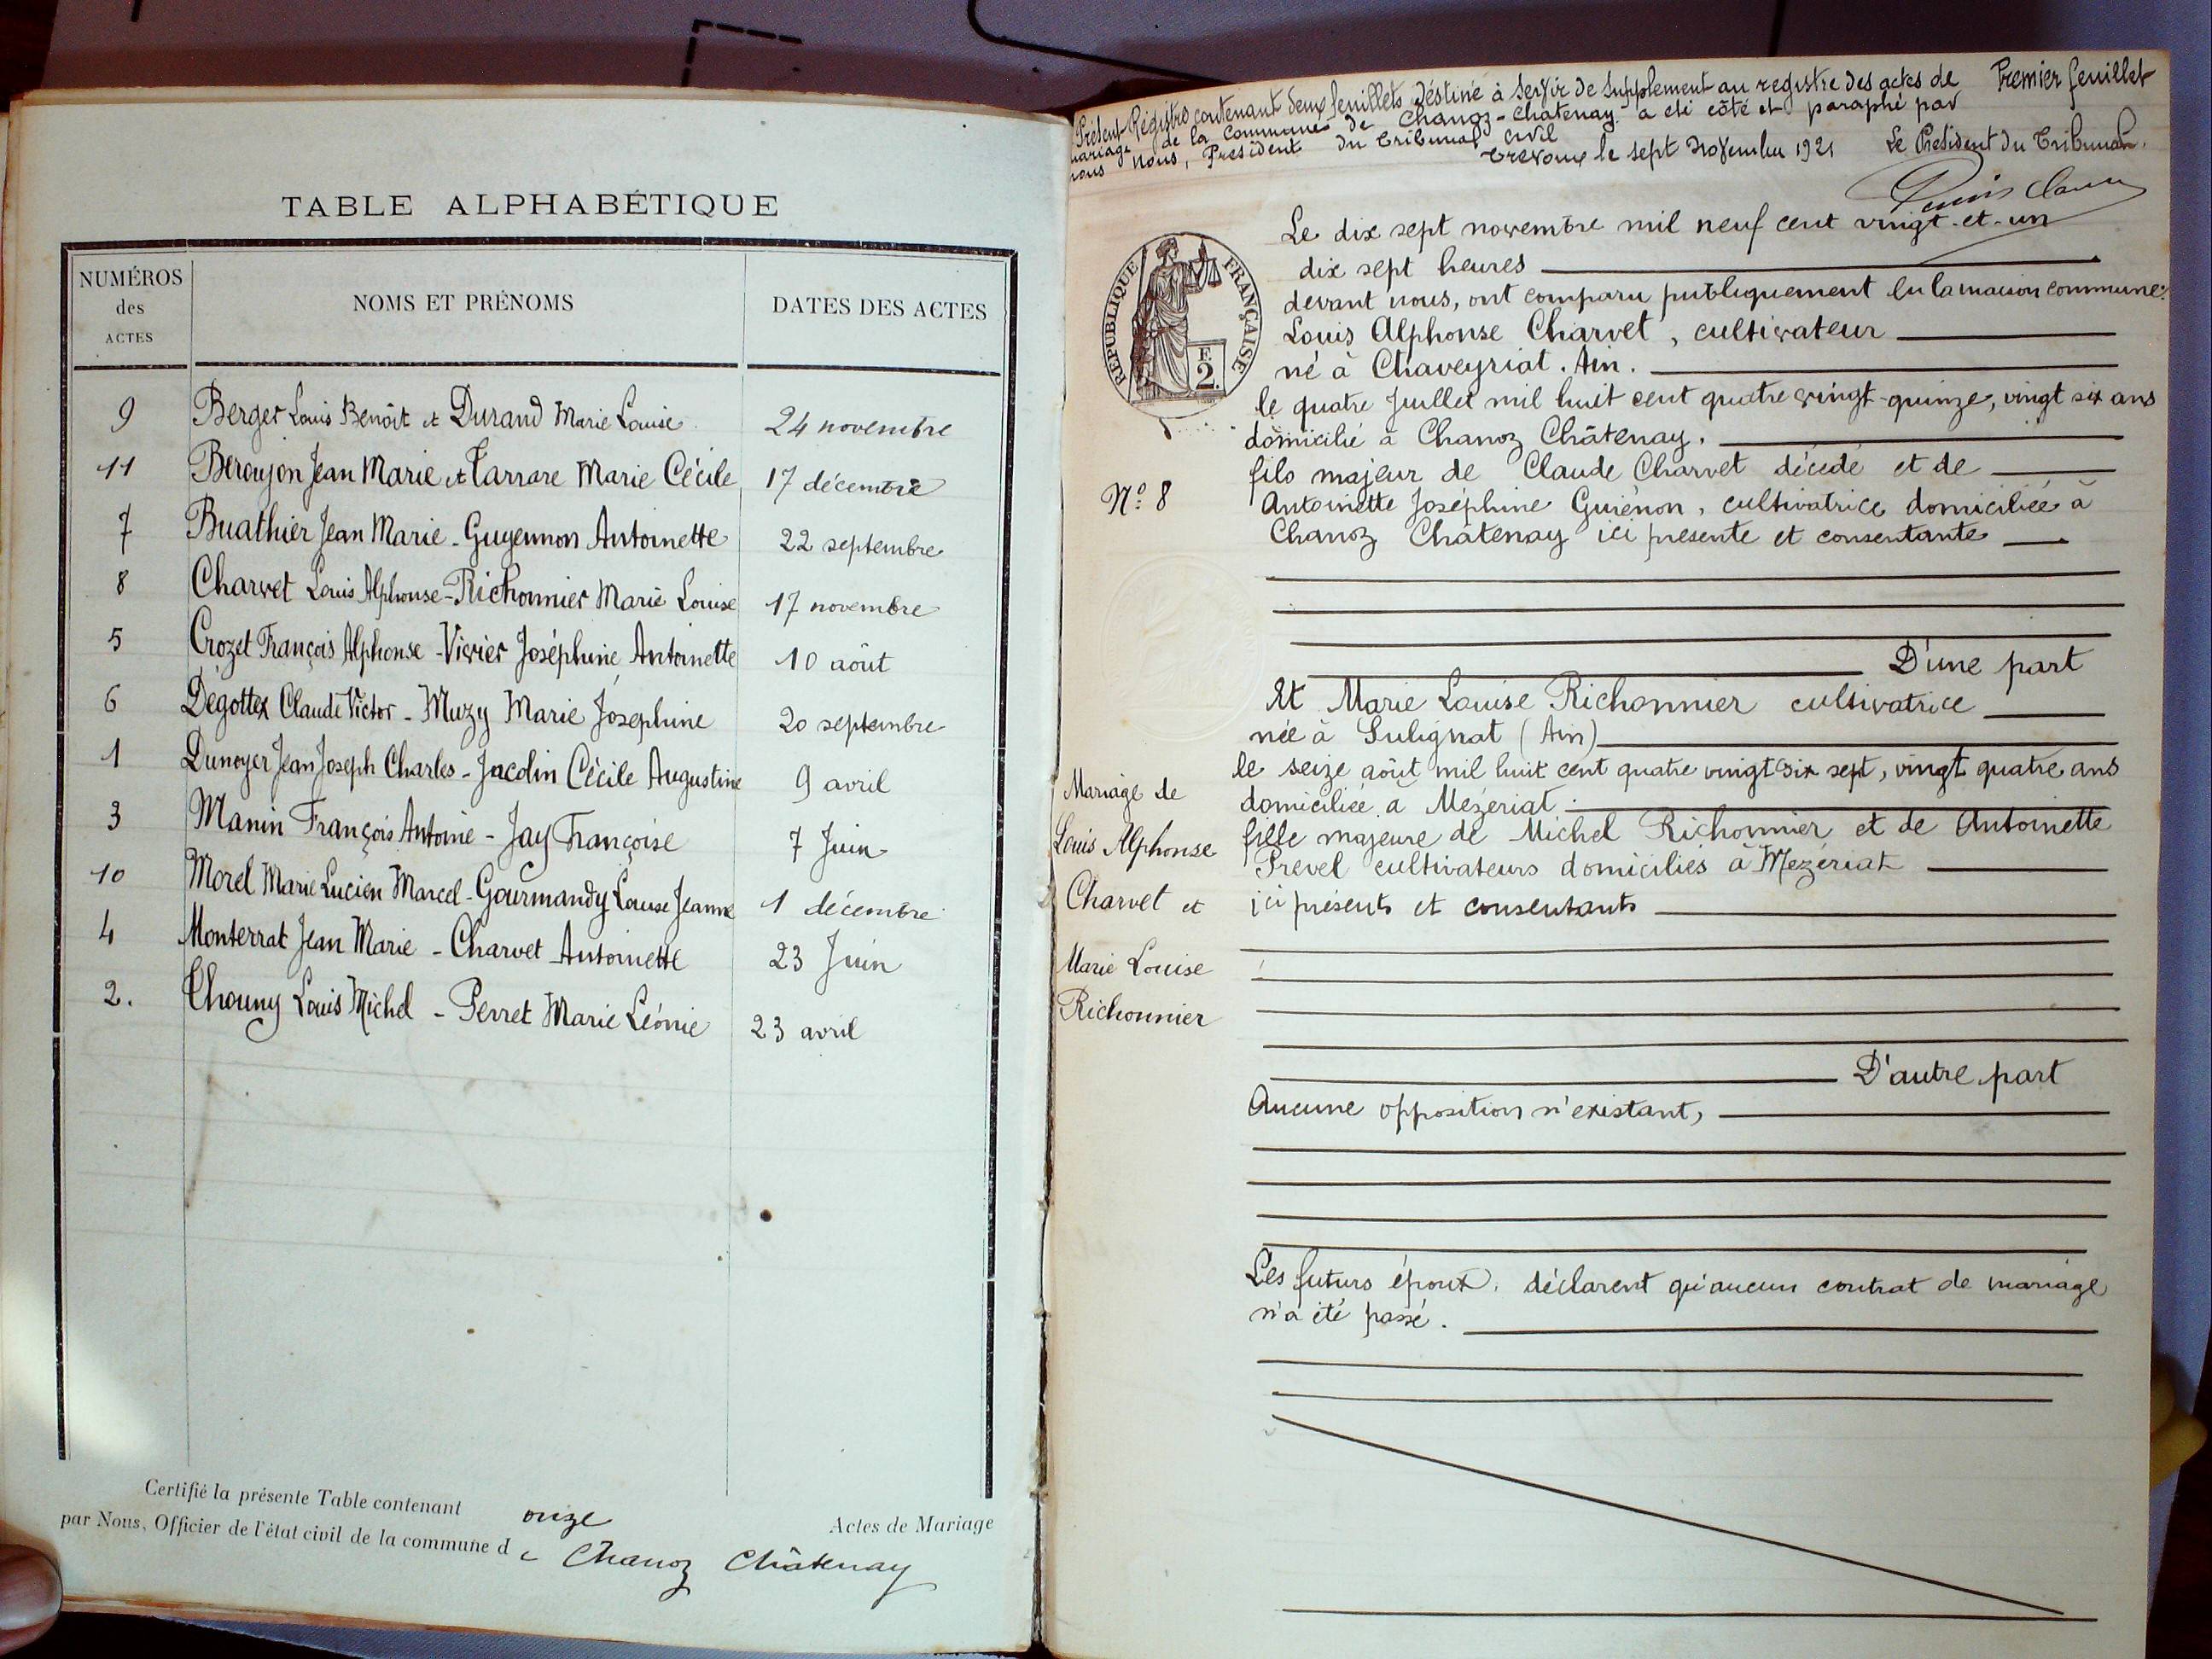 TABLE ALPHABÉTIQUE
NUMÉROS des ACTES NOMS ET PRÉNOMS DATES DES ACTES
9 Berger Louis Benoît et Durand Marie Louise 24 novembre
11 Beroujon Jean Marie et Tarrare Marie Cécile 17 décembre
7 Buathier Jean Marie - Guyennon Antoinette 22 septembre
8 Charvet Louis Alphonse - Richonnier Marie Louise 17 novembre
5 Crozet François Alphonse - Vivier Joséphine Antoinette 10 août
6 Degottex Claude Victor - Muzy Marie Joséphine 20 septembre
1 Dunoyer Jean Joseph Charles - Jacolin Cécile Augustine 9 avril
3 Manin François Antoine - Jay Françoise 7 Juin
10 Morel Marie Lucien Marcel - Gourmandy Louise Jeanne 1 décembre
4 Monterrat Jean Marie - Charvet Antoinette 23 Juin
2. Louis Michel - Perret Marie Léonie 23 avril
Certifié la présente Table contenant onze Actes de Mariage
par Nous, Officier de l'état civil de la commune de Chanoz Châtenay
Présent Régistre contenant deux feuillets déstiné à servir de supplement au registre des actes de Premier feuillet
mariage de la Commune de Chanoz-Châtenay a été côté et paraphé par
nous Nous, President du Tribunal civil
Trevoux le sept Novembre 1921 Le President du Tribunal.
RÉPUBLIQUE FRANÇAISE
F. 2.
Le dix sept novembre mil neuf cent vingt-et-un
dix sept heures
devant nous, ont comparu publiquement en la maison commune:
Louis Alphonse Charvet, cultivateur
né à Chaveyriat. Ain.
le quatre Juillet mil huit cent quatre vingt-quinze, vingt six ans
domicilié à Chanoz Châtenay.
fils majeur de Claude Charvet décédé et de
Nº 8
Antoinette Joséphine Guiénon, cultivatrice domiciliée à
Chanoz Châtenay ici présente et consentante
D'une part
Et Marie Louise Richonnier cultivatrice
née à Sulignat (Ain)
le seize août mil huit cent quatre vingt dix sept, vingt quatre ans
domiciliée à Mézériat.
fille majeure de Michel Richonnier et de Antoinette
Prevel cultivateurs domiciliés à Mézériat
ici présents et consentants
Mariage de
Louis Alphonse
Charvet et
Marie Louise
Richonnier
D'autre part
Aucune opposition n'existant,
Les futurs époux. déclarent qu'aucun contrat de mariage
n'a été passé.